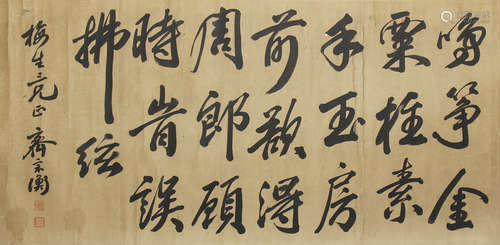 鳴箏金
粟柱素
手玉房
前欲得
周郎顧
時旹誤
拂絃
梅生兄正 齊衡